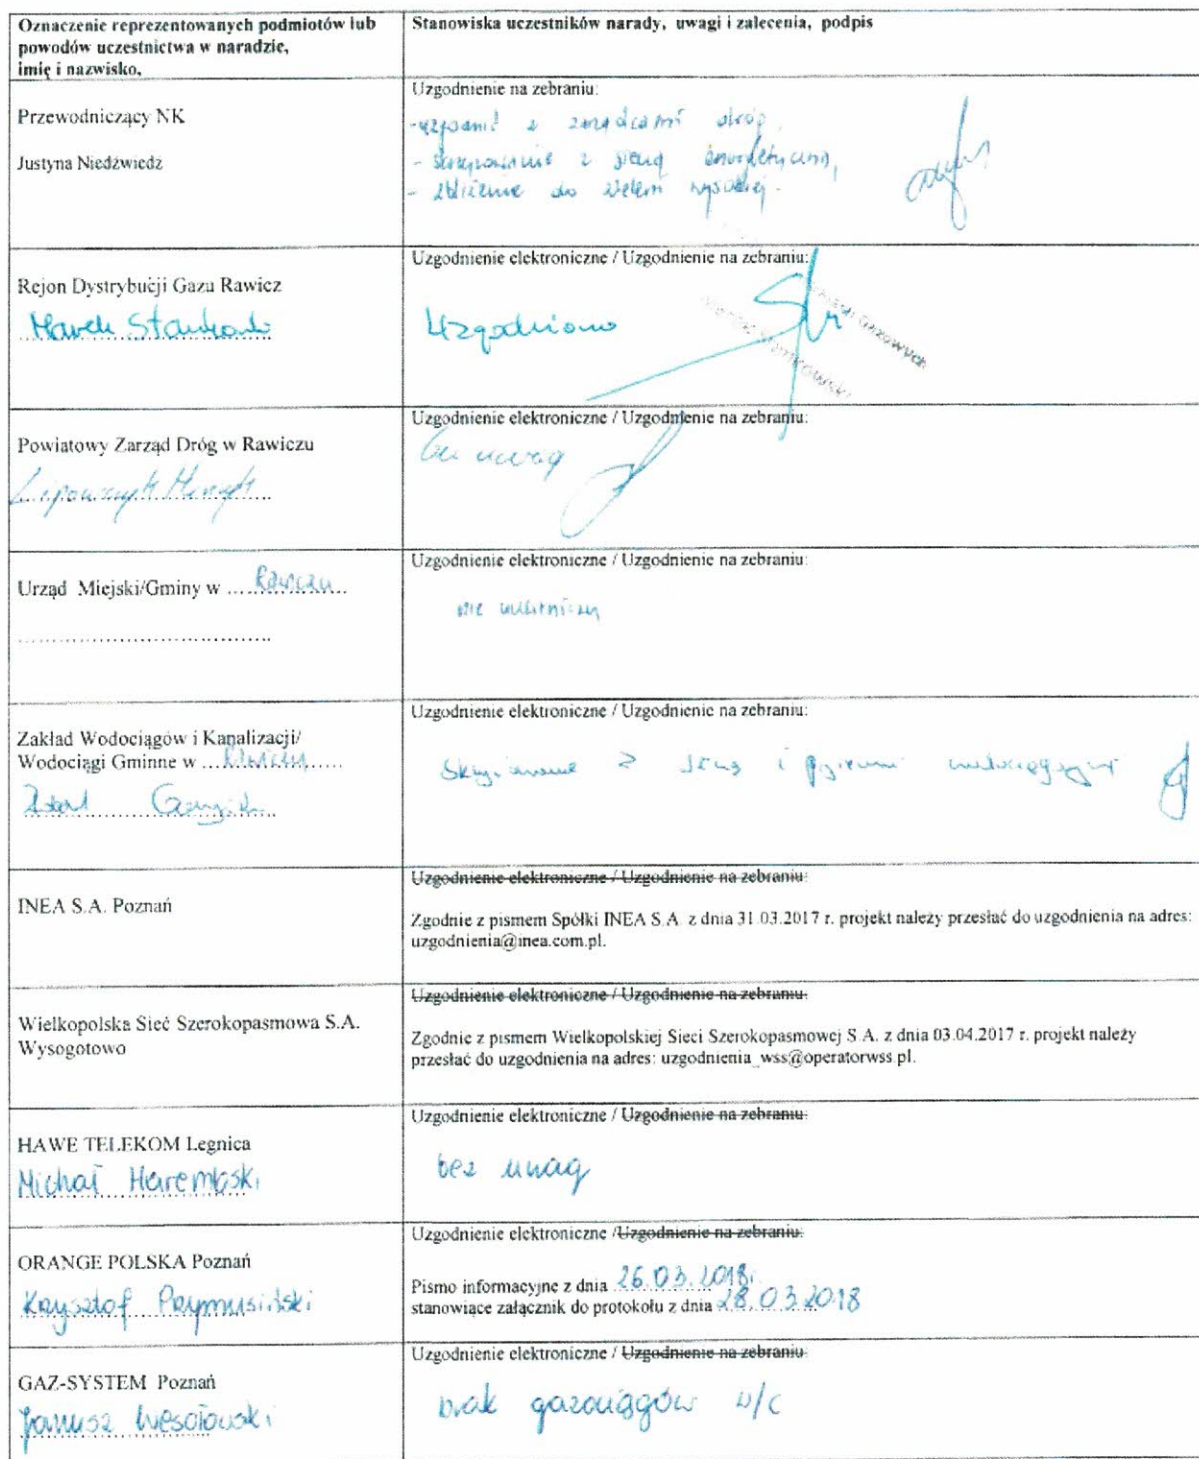 Oznaczenie reprezentowanych podmiotów lub
powodów uczestnictwa w naradzie,
imię i nazwisko,
Stanowiska uczestników narady, uwagi i zalecenia, podpis
Przewodniczący NK
Justyna Niedźwiedz
Uzgodnienie na zebraniu:
- z zarządcami dróg,
- z siecią energetyczną,
- zbliżenie do zieleni wysokiej.
Rejon Dystrybucji Gazu Rawicz
Marek
Uzgodnienie elektroniczne / Uzgodnienie na zebraniu:
Uzgodniono
Gazowych
Powiatowy Zarząd Dróg w Rawiczu
Uzgodnienie elektroniczne / Uzgodnienie na zebraniu:
bez uwag
Urząd Miejski/Gminy w Rawiczu
Uzgodnienie elektroniczne / Uzgodnienie na zebraniu:
nie
Zakład Wodociągów i Kanalizacji/
Wodociągi Gminne w Rawiczu
Uzgodnienie elektroniczne / Uzgodnienie na zebraniu:
z i
INEA S.A. Poznań
Uzgodnienie elektroniczne / Uzgodnienie na zebraniu:
Zgodnie z pismem Spółki INEA S.A. z dnia 31.03.2017 r. projekt należy przesłać do uzgodnienia na adres:
uzgodnienia@inea.com.pl.
Wielkopolska Sieć Szerokopasmowa S.A.
Wysogotowo
Uzgodnienie elektroniczne / Uzgodnienie na zebraniu:
Zgodnie z pismem Wielkopolskiej Sieci Szerokopasmowej S.A. z dnia 03.04.2017 r. projekt należy
przesłać do uzgodnienia na adres: uzgodnienia_wss@operatorwss.pl.
HAWE TELEKOM Legnica
Michał Harembski
Uzgodnienie elektroniczne / Uzgodnienie na zebraniu:
bez uwag
ORANGE POLSKA Poznań
Krzysztof Przymusiński
Uzgodnienie elektroniczne / Uzgodnienie na zebraniu:
Pismo informacyjne z dnia 26.03.2018r.
stanowiące załącznik do protokołu z dnia 28.03.2018
GAZ-SYSTEM Poznań
Janusz Wesołowski
Uzgodnienie elektroniczne / Uzgodnienie na zebraniu:
brak gazociągów w/c